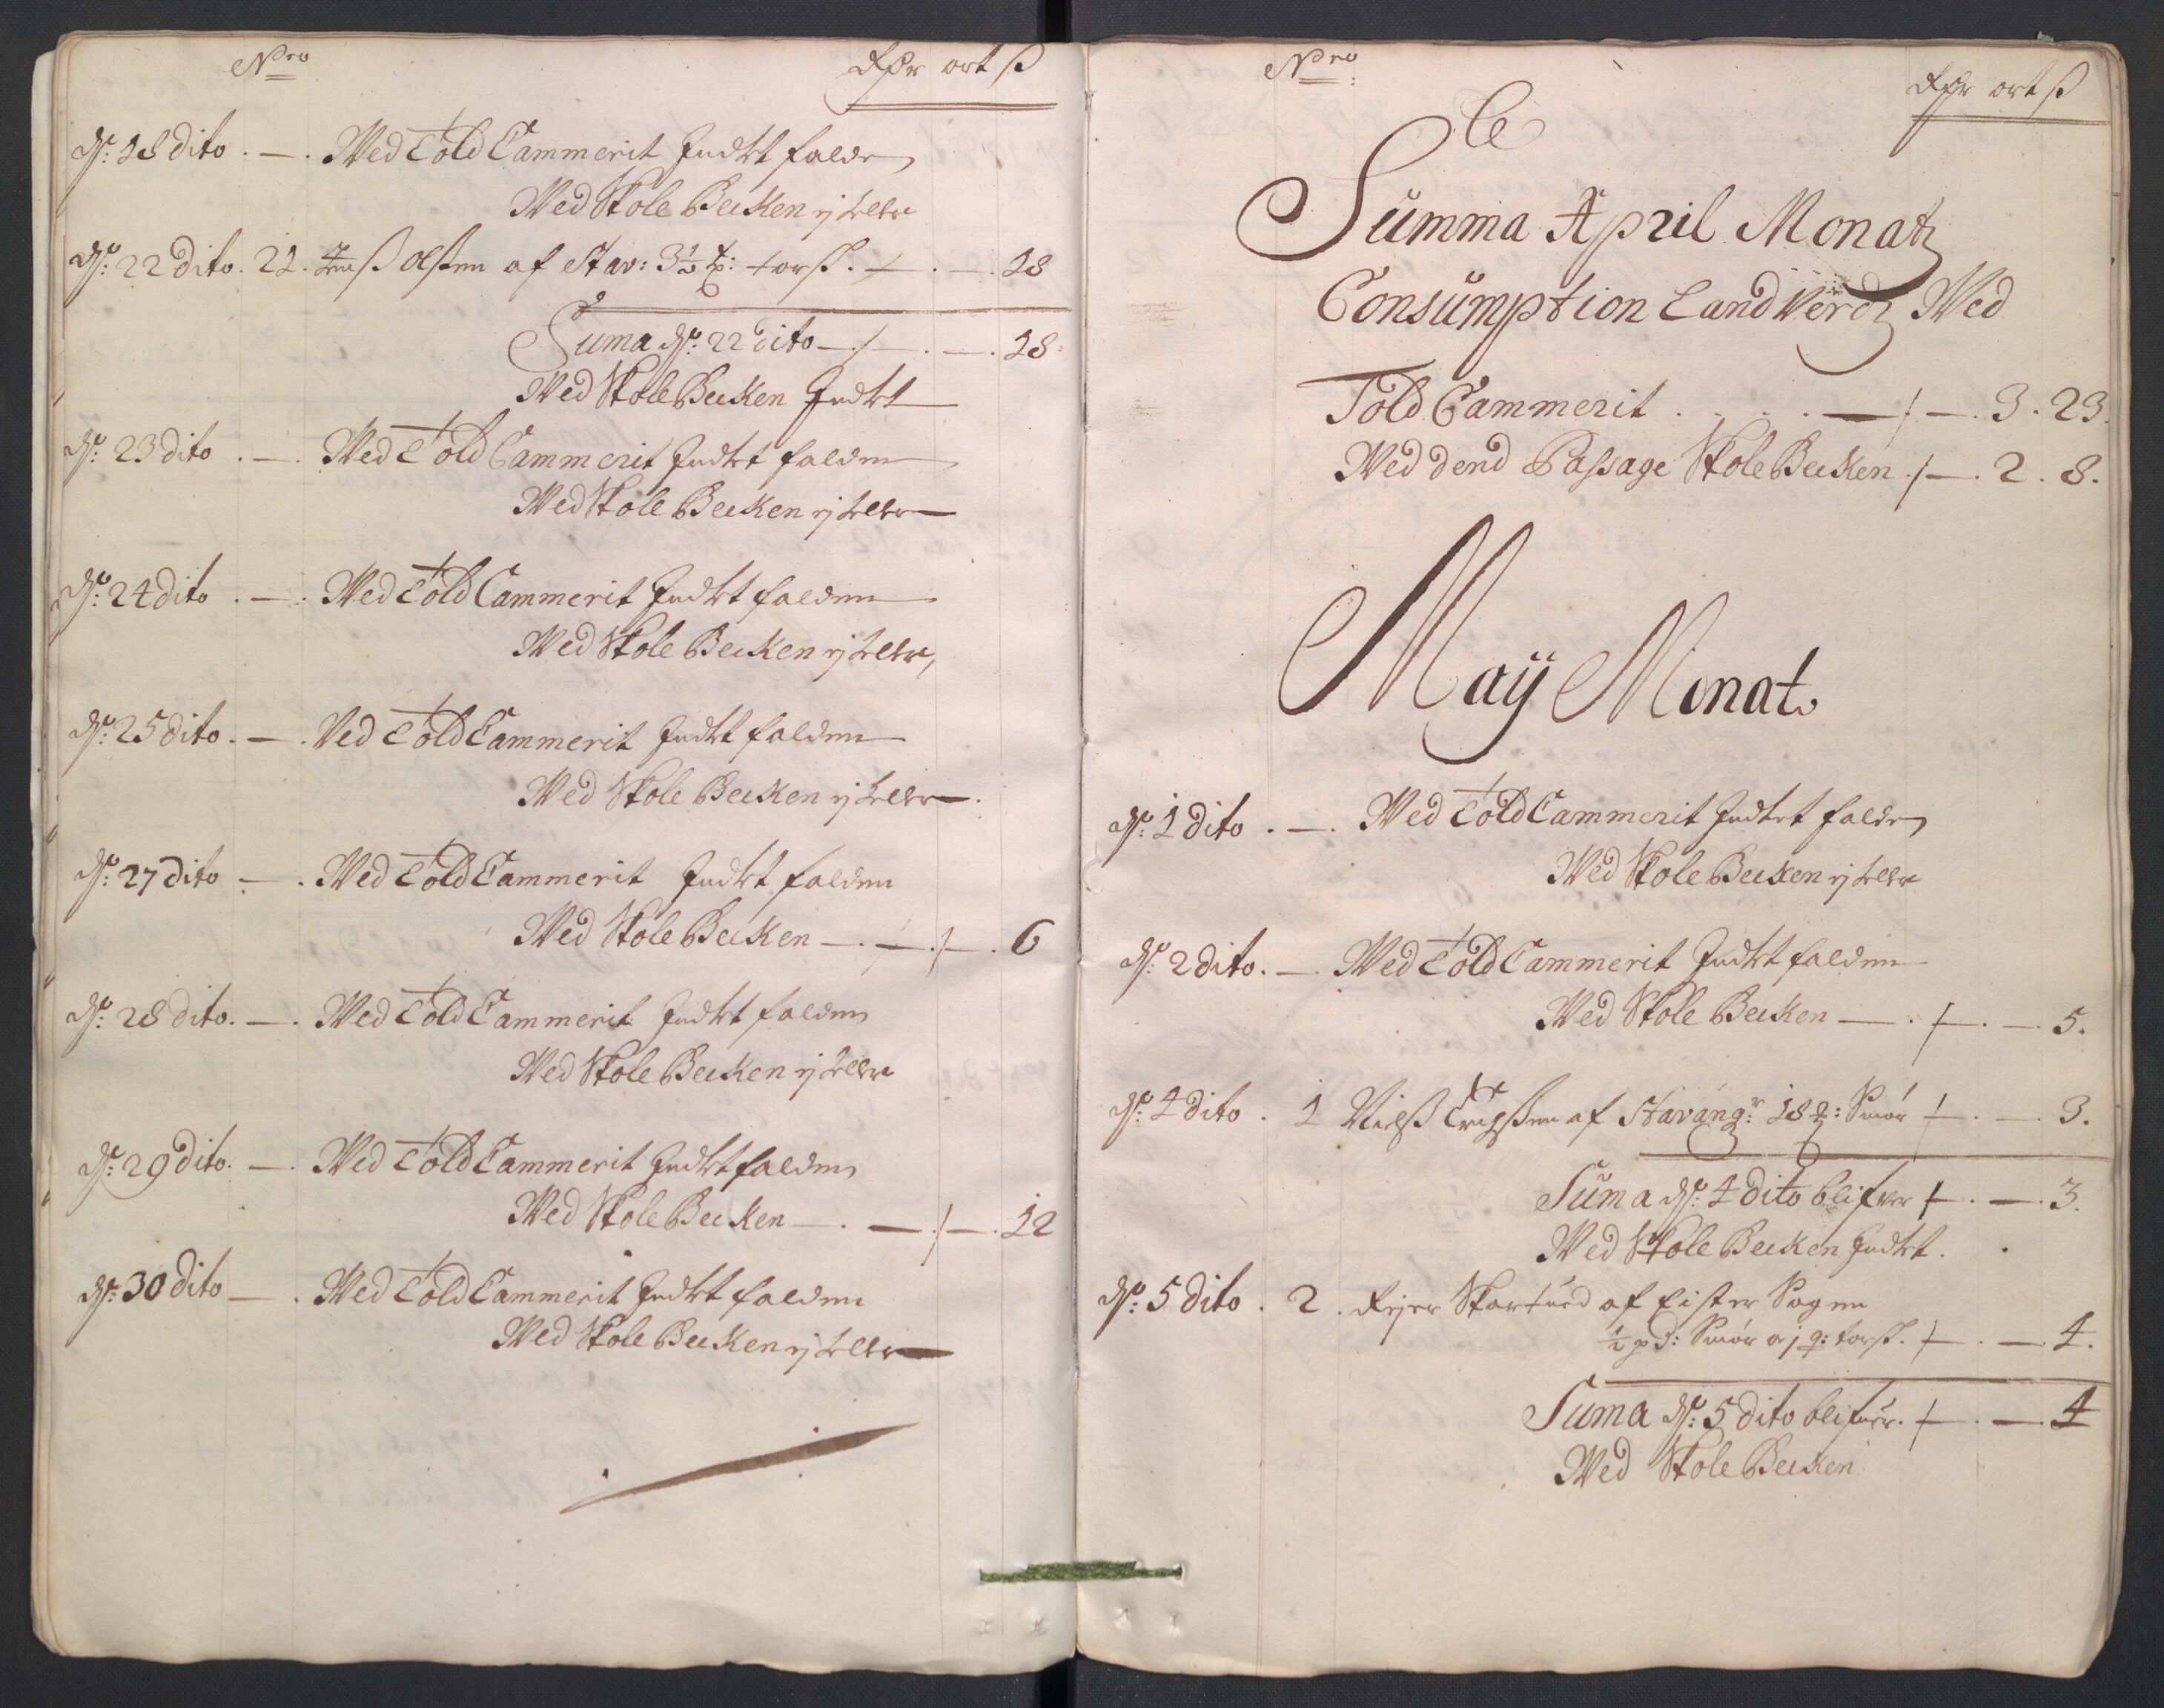 Nro Rdr ort ß
d: 18 dito . — . Wed Told Cammerit Indtet falden
Wed Skole Becken ej heller
d: 22 dito . 21. Jenß Olßen af Stav: 3½ torsk . — . — . 18
Suma d: 22 dito — . — . 18
Wed Skole Becken Indtet
d: 23 dito . — . Wed Told Cammerit Indtet falden
Wed Skole Becken ej heller
d: 24 dito . — . Wed Told Cammerit Indtet falden
Wed Skole Becken ej heller
d: 25 dito . — . Ved Told Cammerit Indtet falden
Wed Skole Becken ej heller
d: 27 dito — . Wed Told Cammerit Indtet falden
Wed Skole Becken — . — . — . 6
d: 28 dito . — . Wed Told Cammerit Indtet falden
Wed Skole Becken ej heller
d: 29 dito . — . Wed Told Cammerit Indtet falden
Wed Skole Becken — . — . — . 12
d: 30 dito — . Wed Told Cammerit Indtet falden
Wed Skole Becken ej heller
Nro
Rdr ort ß
Summa April Monatz
Consumption Landverdz Wed
Told Cammerit . . . . — . — . 3 . 23.
Wed dend Passage Skole Becken . — . 2 . 8.
Maij Monat.
d: 1 dito . — . Wed Told Cammerit Indtet falden
Wed Skole Becken ej heller
d: 2 dito . — . Wed Told Cammerit Indtet falden
Wed Skole Becken — . — . — 5.
d: 4 dito . 1 Nielß af Stavang.r 18 : Smør — . — 3.
Suma d: 4 dito blifver — . — . 3.
Wed Skole Becken Indtet .
d: 5 dito . 2 . af Sogen
½ pd: Smør torsk . — . — 4.
Suma d: 5 dito blifver . — . — 4
Wed Skole Becken